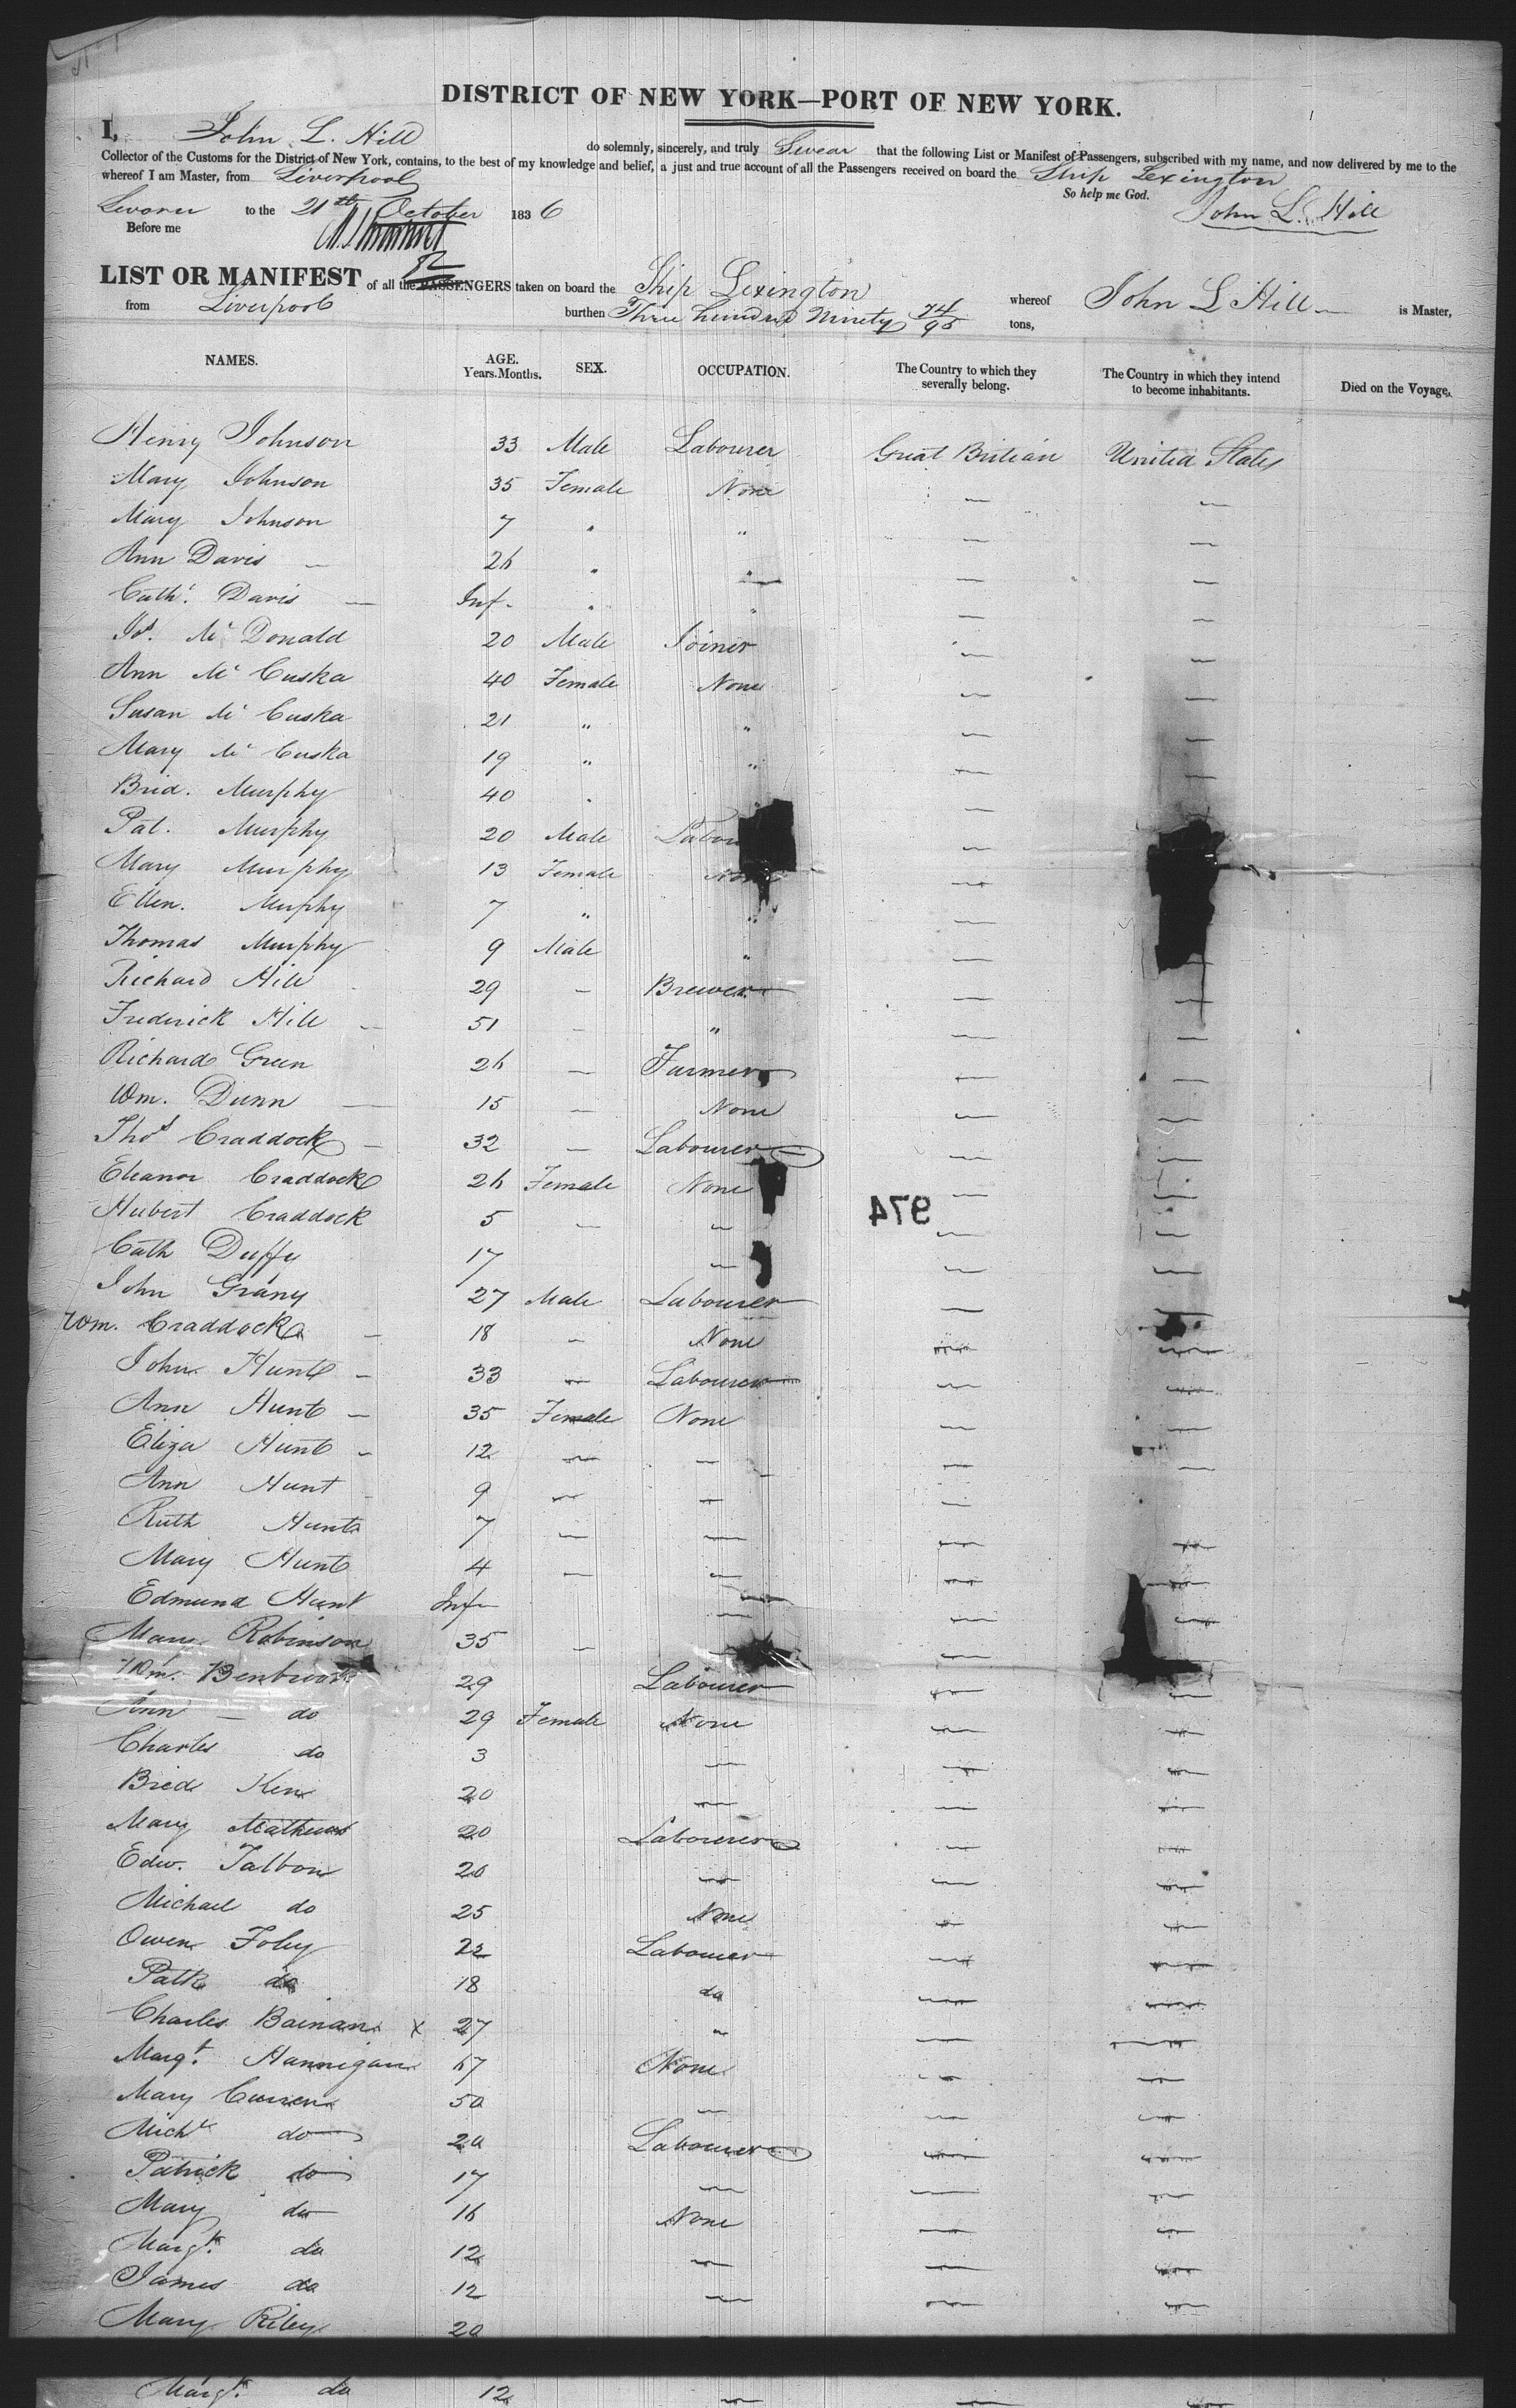 DISTRICT OF NEW YORK—PORT OF NEW YORK.
I, John L. Hill do solemnly, sincerely, and truly Swear that the following List or Manifest of Passengers, subscribed with my name, and now delivered by me to the
Collector of the Customs for the District of New York, contains, to the best of my knowledge and belief, a just and true account of all the Passengers received on board the Ship Lexington
whereof I am Master, from Liverpool So help me God.
Sworn to the 21th October 1836 John L. Hill
Before me
LIST OR MANIFEST of all the PASSENGERS taken on board the Ship Lexington whereof John L Hill is Master,
from Liverpool burthen Three hundred Ninety 74/95 tons,
NAMES. AGE. Years. Months. SEX. OCCUPATION. The Country to which they severally belong. The Country in which they intend to become inhabitants. Died on the Voyage.
Henry Johnson 33 Male Labourer Great Britian United States
Mary Johnson 35 Female None — —
Mary Johnson 7 " " — —
Ann Davis — 26 " " — —
Cath. Davis — Inf. " " — —
Jos. Mc Donald 20 Male Joiner — —
Ann Mc Cuska 40 Female None — —
Susan Mc Cuska 21 " " — —
Mary Mc Cuska 19 " " — —
Brid. Murphy 40 " " — —
Pat. Murphy 20 Male Labou — —
Mary Murphy 13 Female None —
Ellen. Murphy 7 " " —
Thomas Murphy 9 Male " — —
Richard Hill 29 — Brewer — —
Frederick Hill — 51 — " — —
Richard Green 26 — Farmer — —
Wm. Dunn — 15 — None — —
Thos Craddock — 32 — Labourer — —
Eleanor Craddock 26 Female None — —
974
Hubert Craddock 5 — — — —
Cath Duffy 17 — — —
John Grany 27 Male Labourer — —
Wm. Craddock — 18 — None — —
John Hunt — 33 — Labourer — —
Ann Hunt — 35 Female None — —
Eliza Hunt — 12 — — — —
Ann Hunt 9 — — —
Ruth Hunt 7 — — — —
Mary Hunt 4 — — — —
Edmund Hunt Inf — — —
Mary Robinson 35 — — —
Wm. Benbrook 29 Labourer — —
Ann — do 29 Female None — —
Charles do 3 — — —
Brid Ken 20 — — —
Mary Mathews 20 Labourer — —
Edw. Talbon 20 — — —
Michael do 25 None — —
Owen Foley 22 Labourer — —
Patk do 18 do — —
Charles Bainan x 27 " — —
Margt. Hannigan 67 None — —
Mary Curren 50 — — —
Michl do 20 Labourer — —
Patrick do 17 — — —
Mary do 16 None — —
Margt. do 12 — — —
James do 12 — — —
Mary Riley 20
Margt. do 12 — — —